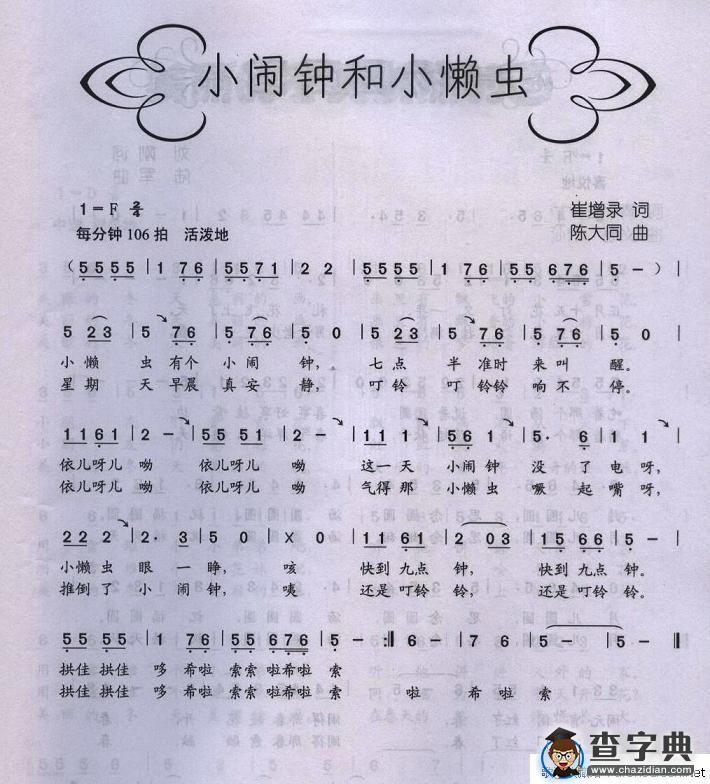 小闹钟和小懒虫
1=F 2/4
崔增录 词
每分钟 106 拍 活泼地
陈大同 曲
( 5 5 5 5 | 1 7 6 | 5 5 7 1 | 2 2 | 5 5 5 5 | 1 7 6 | 5 5 6 7 6 | 5 - ) |
5 2 3 | 5 7 6 | 5 7 6 | 5 0 | 5 2 3 | 5 7 6 | 5 7 6 | 5 0 |
小 懒 虫 有个 小 闹 钟, 七 点 半 准时 来 叫 醒。
星 期 天 早晨 真 安 静, 叮 铃 叮 铃铃 响 不 停。
1 1 6 1 | 2 - | 5 5 5 1 | 2 - | 5 1 1 | 5 6 1 | 5 · 6 | 1 1 |
依儿呀儿 呦 依儿呀儿 呦 这一天 小闹钟 没 了 电 呀,
依儿呀儿 呦 依儿呀儿 呦 气得那 小懒虫 噘 起 嘴 呀,
2 2 2 | 2 · 3 | 5 0 | X | 1 1 6 1 | 2 0 3 | 1 5 6 6 | 5 - |
小懒虫 眼 一 睁, 咳 快到 九点 钟, 快到 九点 钟。
推倒了 小 闹 钟, 咦 还是 叮铃 铃, 还是 叮铃 铃。
5 5 5 5 | 1 7 6 | 5 5 6 7 6 | 5 - :‖ 6 - | 7 6 | 5 - | 5 - ‖
拱佳 拱佳 哆 希啦 索索 啦希啦 索
拱佳 拱佳 哆 希啦 索索 啦希啦 索 啦 希 啦 索
查字典
www.chazidian.com